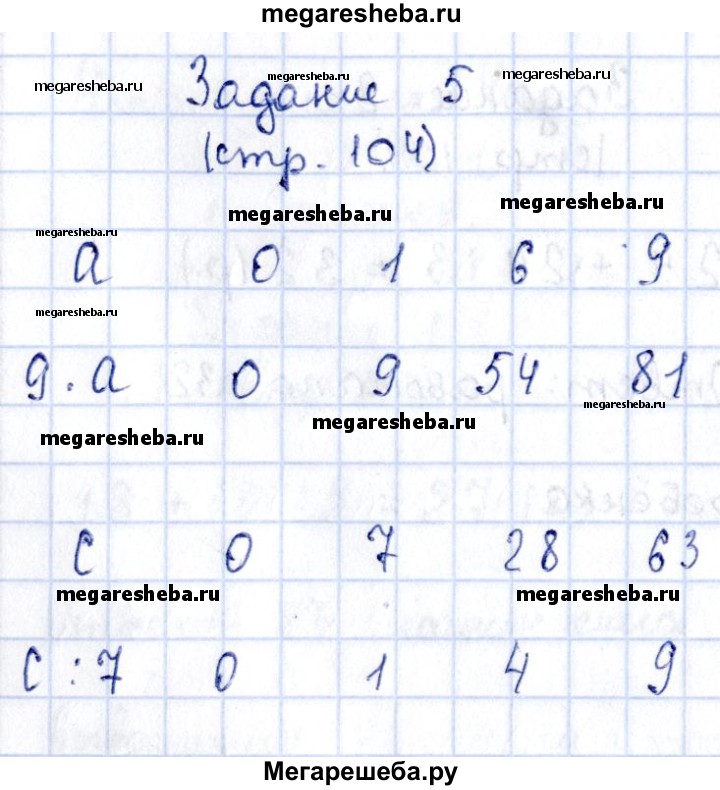 megaresheba.ru
megaresheba.ru megaresheba.ru megaresheba.ru
Задание 5
(стр. 104)
megaresheba.ru megaresheba.ru
megaresheba.ru
a 0 1 6 9
megaresheba.ru
9 · a 0 9 54 81
megaresheba.ru
megaresheba.ru megaresheba.ru
c 0 7 28 63
megaresheba.ru megaresheba.ru
c : 7 0 1 4 9
Мегарешеба.ру